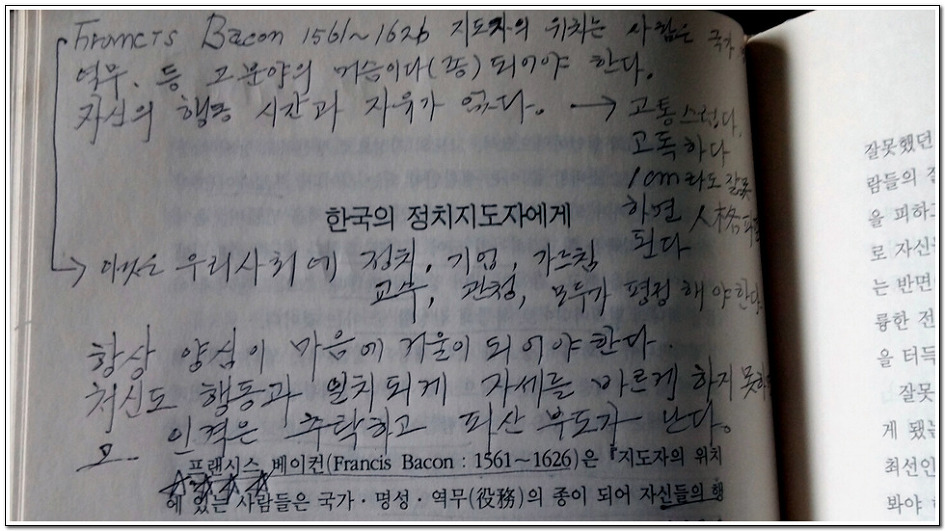 Francis Bacon 1561~1626 지도자의 위치는 사람은 국가
역무, 등 그분야의 머슴이다(종) 되어야 한다.
자신의 행동 시간과 자유가 없다. → 고통스럽다,
고독하다
1cm라도 잘못
하면 人格
된다
한국의 정치지도자에게
→ 이것은 우리사회에 정치, 기업, 가르침
교수, 관청, 모두가 해야한다
항상 양심이 마음에 거울이 되어야한다
처신도 행동과 일치되게 자세를 바르게 하지 못하
고 인격은 추락하고 파산 부도가 난다.
프랜시스 베이컨(Francis Bacon : 1561~1626)은 『지도자의 위치
에 있는 사람들은 국가·명성·역무(役務)의 종이 되어 자신들의 행
잘못했던
람들의
을 피하고
로 자신
는 반면
륭한 전
을 터득
잘못
게 됐는
최선인
봐야